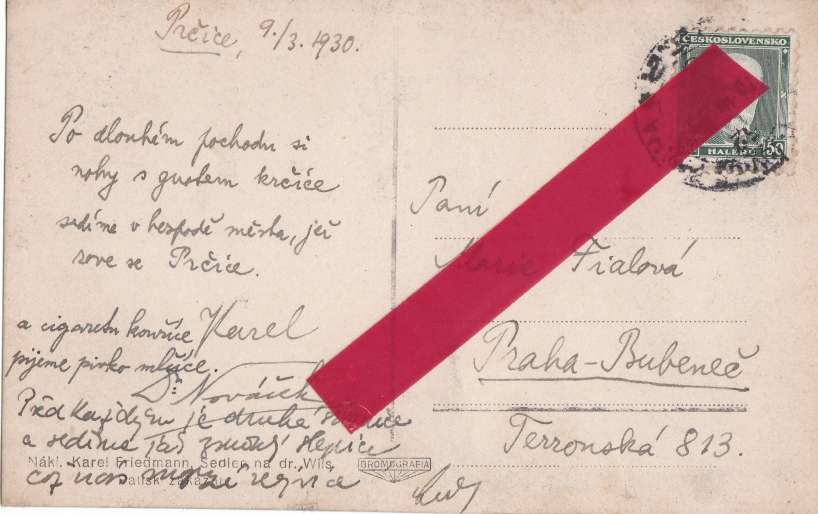 Prčice, 9./3. 1930.
Po dlouhém pochodu si
nohy s gustem krčíce
sedíme v hospodě města, jež
zove se Prčice.
a cigaretu kouříce Karel
pijeme pivko mlčíce.
Dr. Nováček
Před každým je druhá
a sedíme slepice
což nás
Nákl. Karel Friedmann, Sedlec na dr. Wils.
GROMOGRAFIA
ČESKOSLOVENSKO
50 HALÉŘŮ 50
Paní
Marie Fialová
Praha-Bubeneč
Terronská 813.